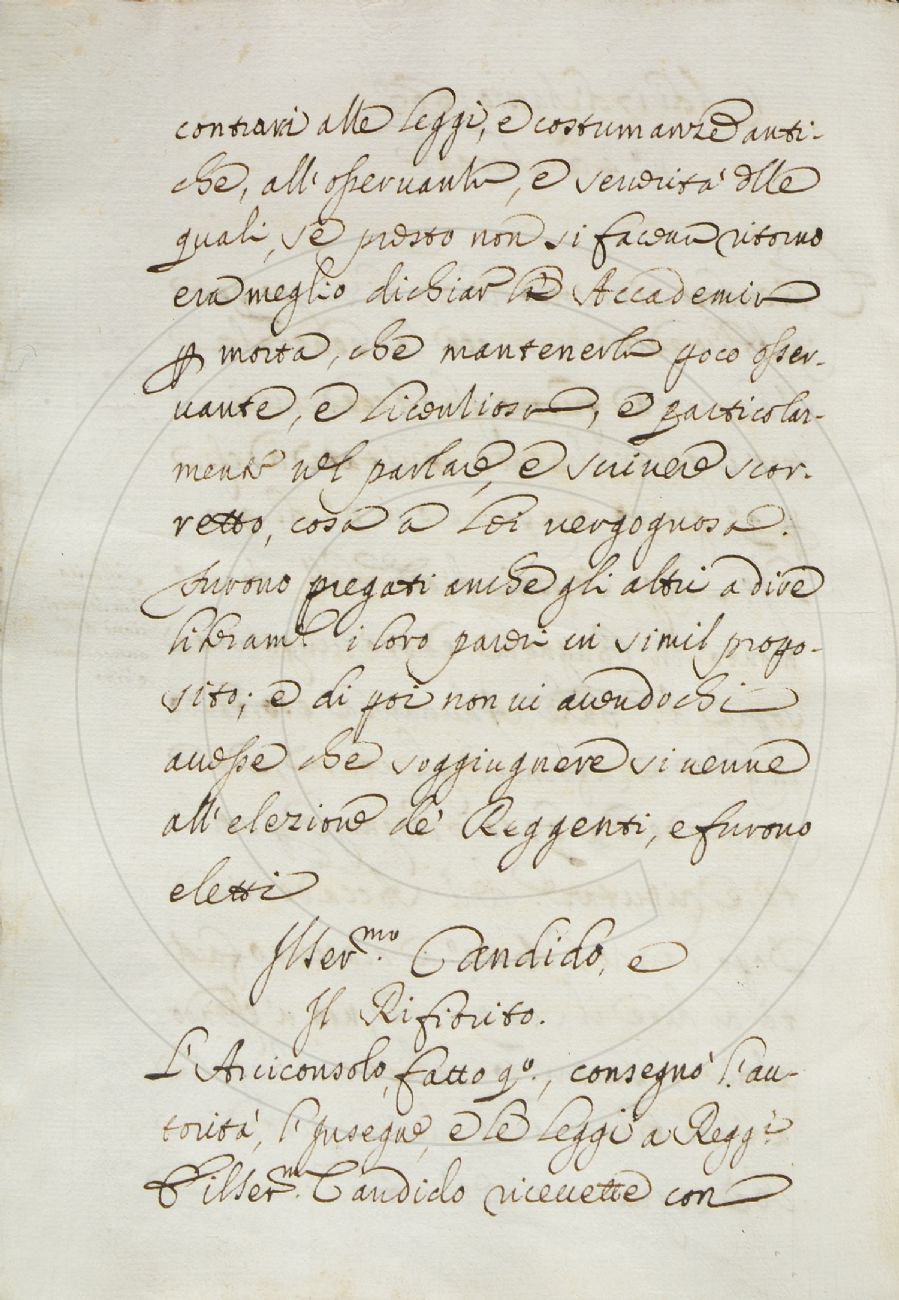 contrari alle leggi, e costumanze anti-
che, all'osservanza, e severità dlle
quali, se presto non si faceva ritorno
era meglio dichiar la Accademia
p morta, che mantenerla poco osser-
vante, e licentiosa, e particolar-
mente nel parlare, e scrivere scor-
retto, cosa a lei vergognosa.
Furono pregati anche gli altri a dire
liberam.e i loro pareri in simil propo-
sito; e di poi non vi avendo chi
avesse che soggiugnere si venne
all'elezione de' Reggenti, e furono
eletti
Il ser.mo Candido, e
Il Rifiorito.
L'Arciconsolo, fatto qo., consegnò l'au-
torità, l'insegne, e le leggi a Regg.i
E il ser.m Candido ricevette con